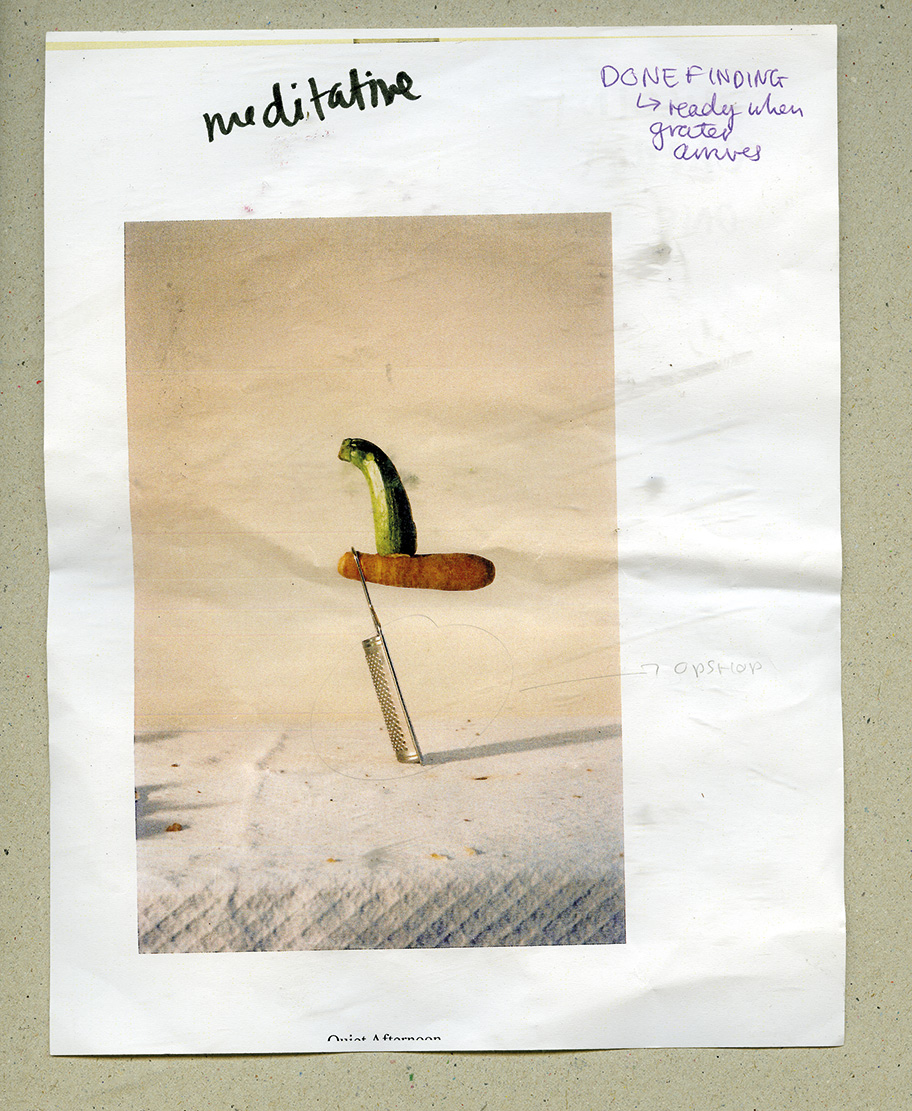 meditative
DONE FINDING
↳ ready when
grater
arrives
→ OPSHOP
Quiet Afternoon